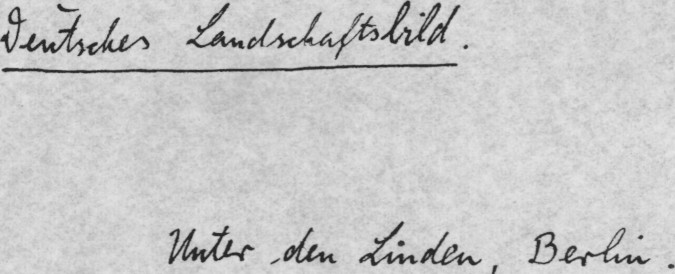 Deutsches Landschaftsbild.
Unter den Linden, Berlin.